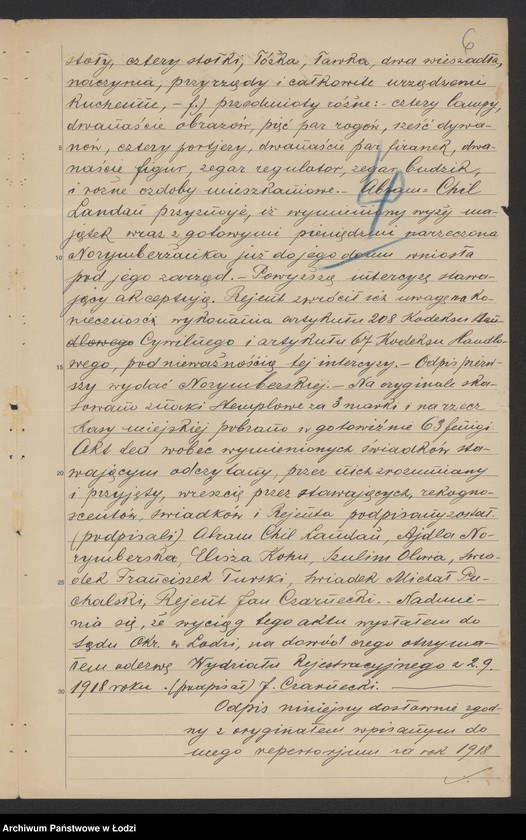 6
stoły, cztery stołki, łóżka, ławka, dwa wieszadła,
naczynia, przyrządy i całkowite urządzenie
kuchenne, – f.) przedmioty różne: – cztery lampy,
dwanaście obrazów, pięć par rogów, sześć dywa-
5 nów, cztery portjery, dwanaście par firanek, dwa-
naście figur, zegar regulator, zegar budzik,
i różne ozdoby mieszkaniowe. – Abram-Chil
Landau przyznaje, iż wymieniony wyżej ma-
jątek wraz z gotowymi pieniędzmi narzeczona
10 Norymberżanka już do jego domu wniosła
pod jego zarząd. – Powyższą intercyzę stawa-
jący akceptują. Rejent zwrócił też uwagę na ko-
nieczność wykonania artykułu 208 Kodeksu Han-
dlowego Cywilnego i artykułu 67 Kodeksu Handlo-
15 wego, pod nieważnością tej intercyzy. – Odpis pierw-
szy wydać Norymberskiej. – Na oryginale ska-
sowano znaczki stemplowe za 3 marki i na rzecz
kasy miejskiej pobrano w gotowiźnie 63 fenigi.
Akt ten wobec wymienionych świadków sta-
20 wającym odczytany, przez nich zrozumiany
i przyjęty, wreszcie przez stawających, rekogno-
scentów, świadków i Rejenta podpisany został.
(podpisali) Abram Chil Landau, Ajdla No-
rymberska, Elisza Kohn, Szulim Oliwa, świa-
25 dek Franciszek Turski, świadek Michał Pu-
chalski, Rejent Jan Czarnecki. – Nadmie-
nia się, że wyciąg tego aktu wysłałem do
Sądu Okr. w Łodzi, na dowód czego otrzyma-
łem odezwę Wydziału Rejestracyjnego z 2.9.
30 1918 roku. (podpisał) J. Czarnecki.
Odpis niniejszy dosłownie zgod-
ny z oryginałem wpisanym do
mego repertorjum za rok 1918
Archiwum Państwowe w Łodzi